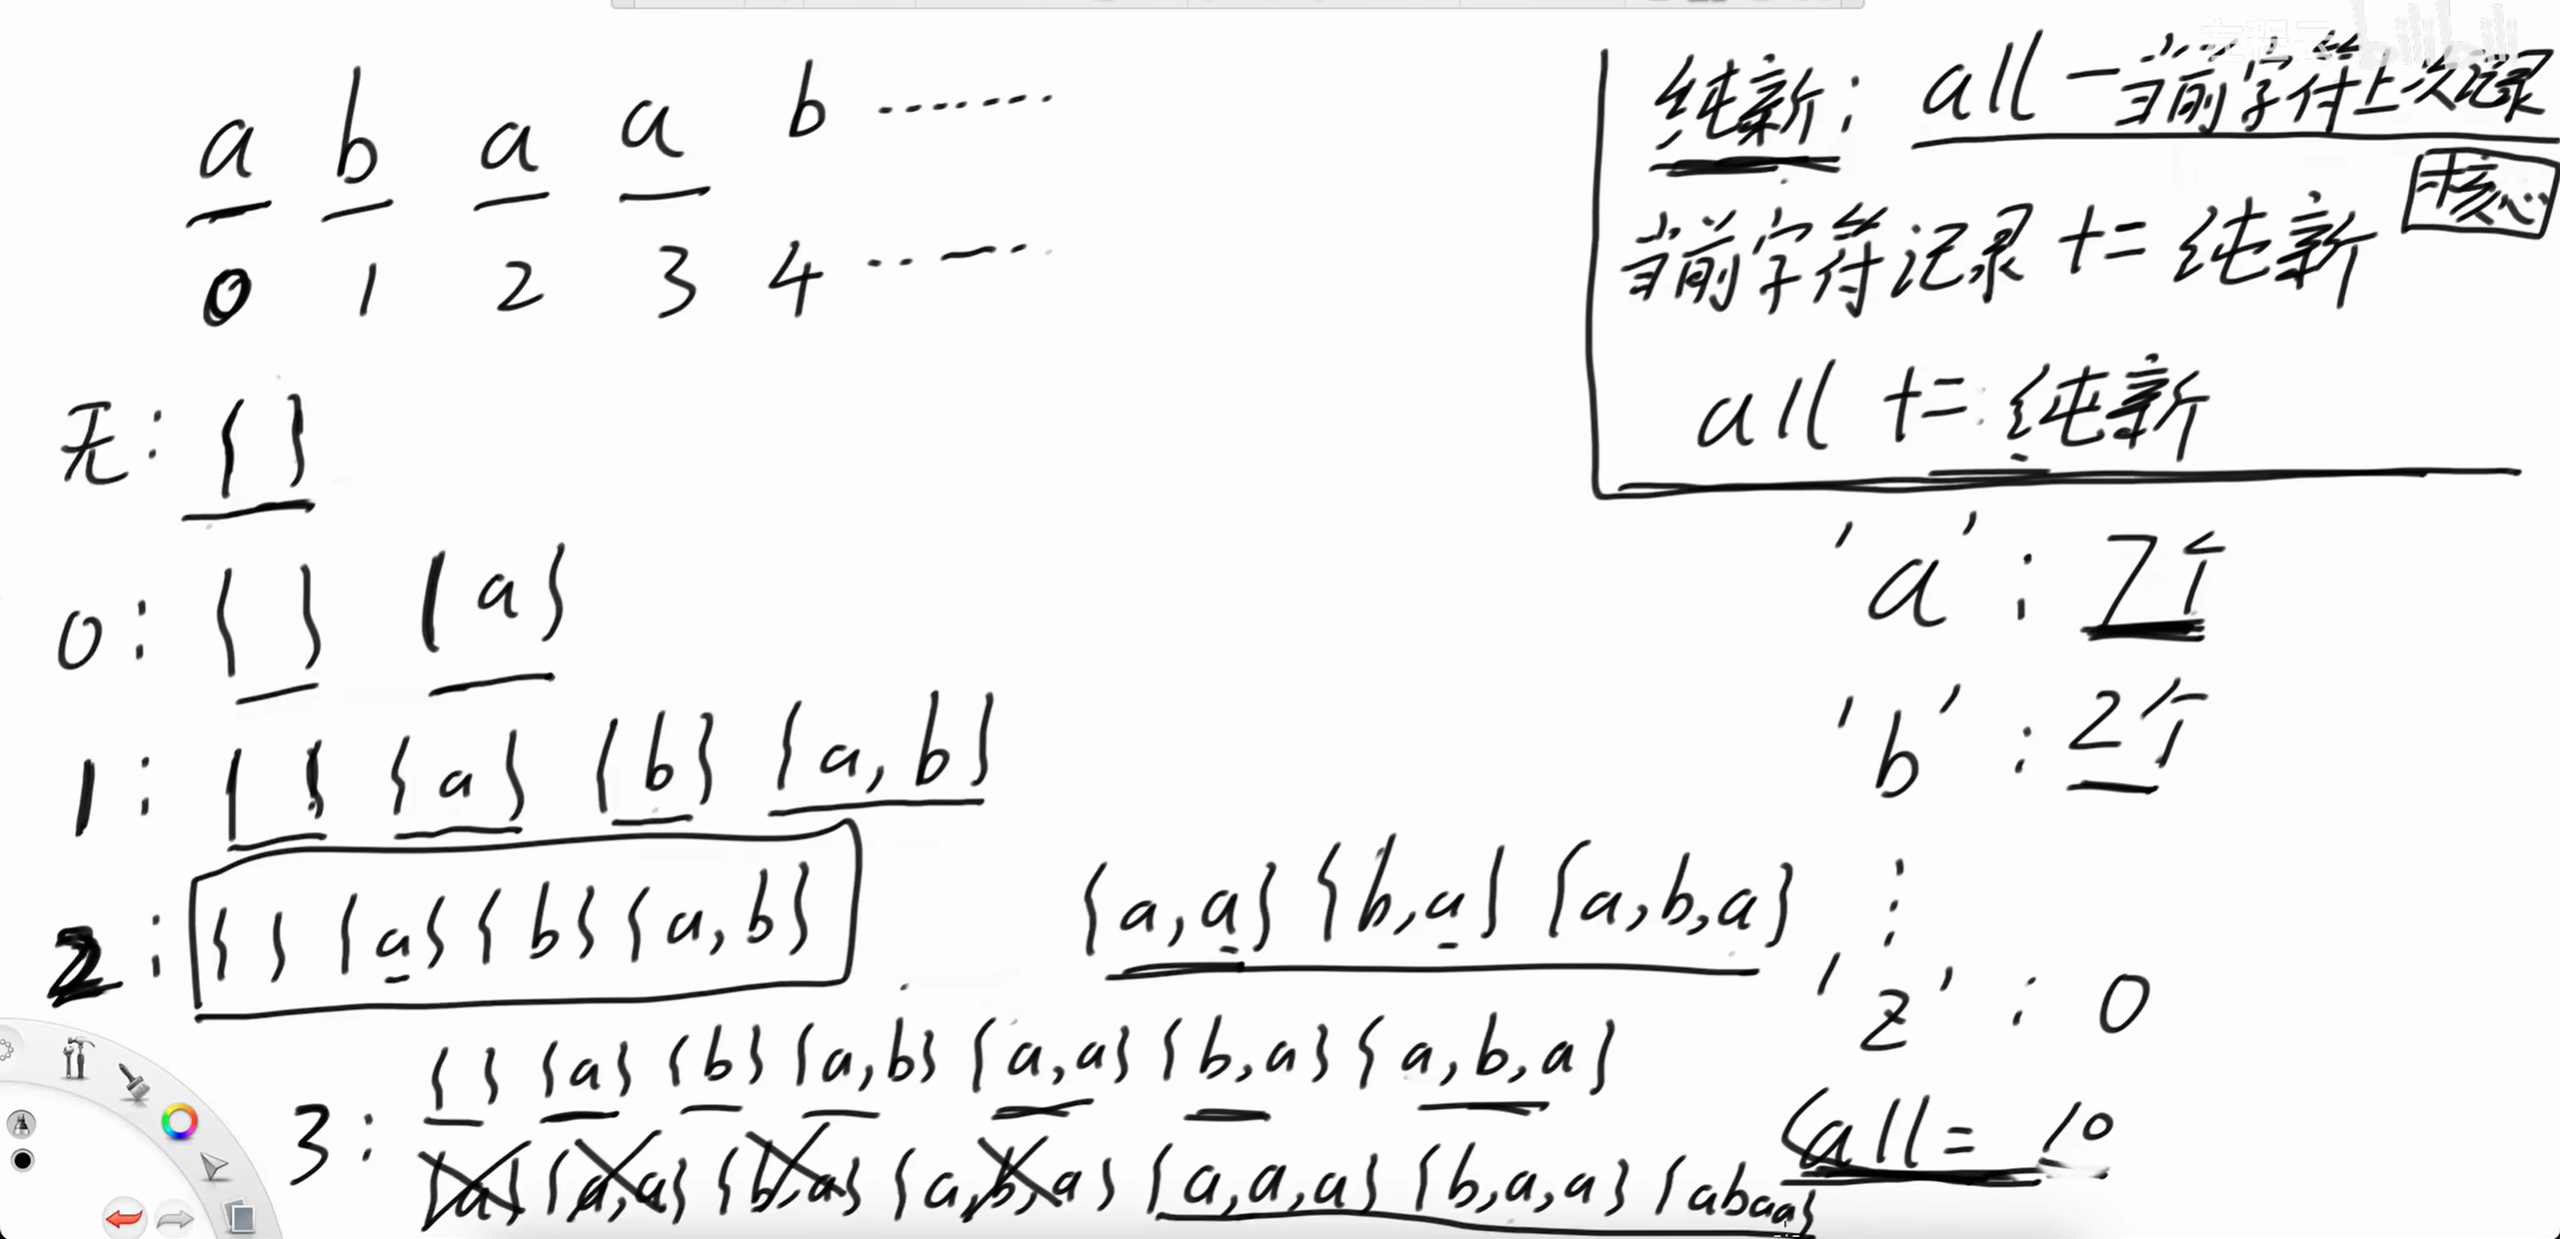 a b a a b ·······
0 1 2 3 4 ·······
无: { }
0: { } {a}
1: { } {a} {b} {a,b}
2: { } {a} {b} {a,b} {a,a} {b,a} {a,b,a}
3: { } {a} {b} {a,b} {a,a} {b,a} {a,b,a}
{a} {a,a} {b,a} {a,b,a} {a,a,a} {b,a,a} {abaa}
纯新: all - 当前字符上次记录
核心
当前字符记录 += 纯新
all += 纯新
'a': 7个
'b': 2个
⋮
'z': 0
all = 10
左程云 bilibili